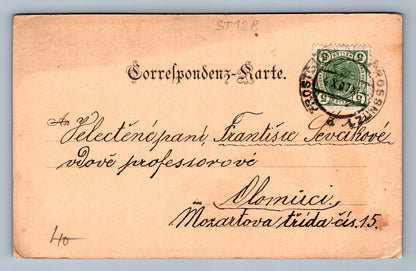 ST12B
Correspondenz-Karte.
An Velectěné paní, Františce Ševčíkové
vdově professorově
Olomúci,
Mozartova třída čís. 15.
40
5 5
5 5
PROSSNITZ